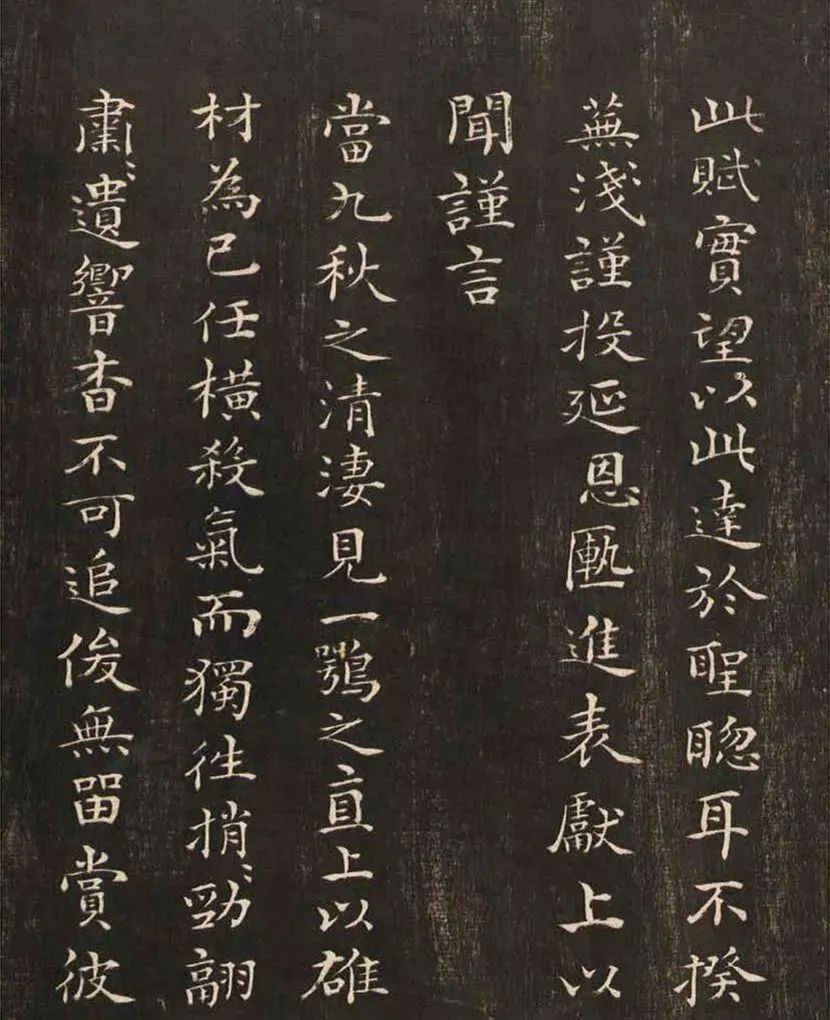 此賦實望以此達於聖聦耳不揆
蕪淺謹投延恩匭進表獻上以
聞謹言
當九秋之清淒見一鶚之直上以雄
材為己任橫殺氣而獨徃捎〻勁翮
肅〻遺響杳不可追俊無留賞彼